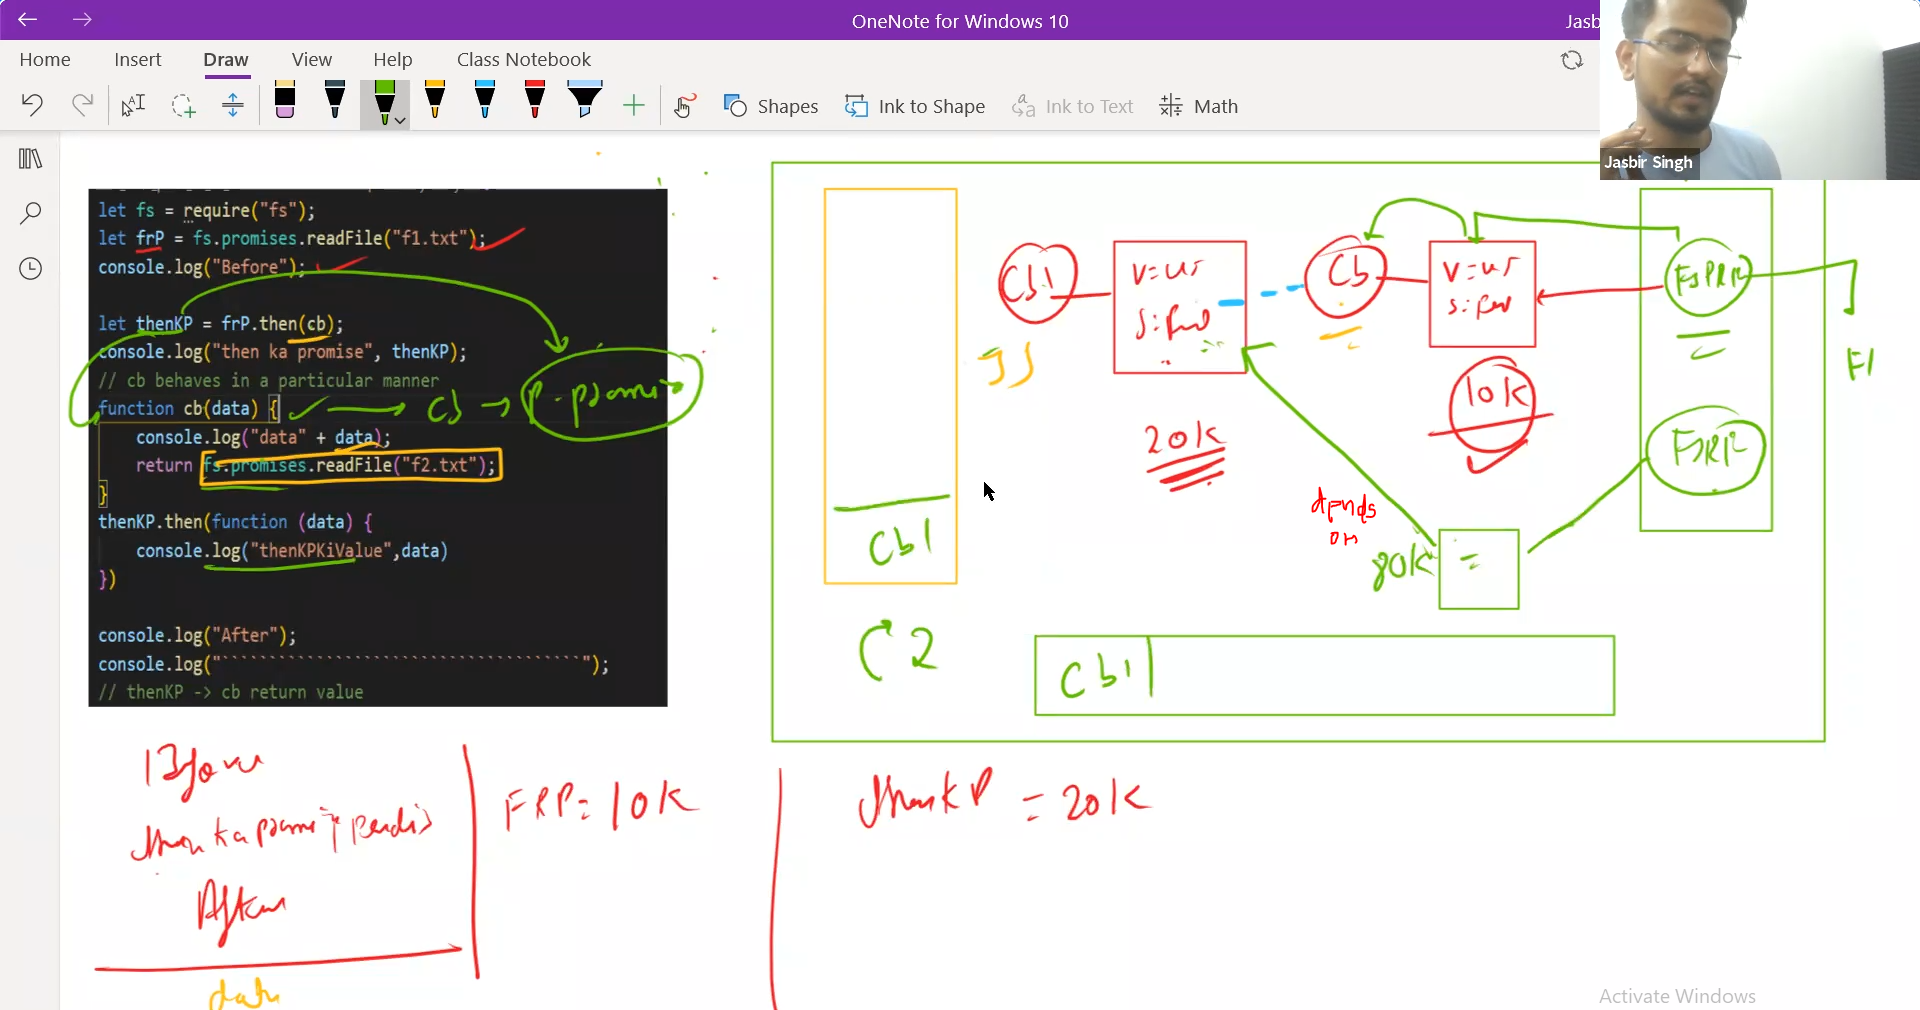 OneNote for Windows 10
Jasb
Home Insert Draw View Help Class Notebook
Shapes Ink to Shape Ink to Text Math
Jasbir Singh
let fs = require("fs");
let frP = fs.promises.readFile("f1.txt");
console.log("Before");
let thenKP = frP.then(cb);
console.log("then ka promise", thenKP);
// cb behaves in a particular manner
function cb(data) {
console.log("data" + data);
return fs.promises.readFile("f2.txt");
}
thenKP.then(function (data) {
console.log("thenKPKiValue",data)
})
console.log("After");
console.log("`````````````````````````````````````");
// thenKP -> cb return value
Cb →
Cb1
Cb
10K
20K
dpnds
on
80K
Cb1
2
Cb1
Before
After
data
FRP = 10K
thenKP = 20K
Activate Windows